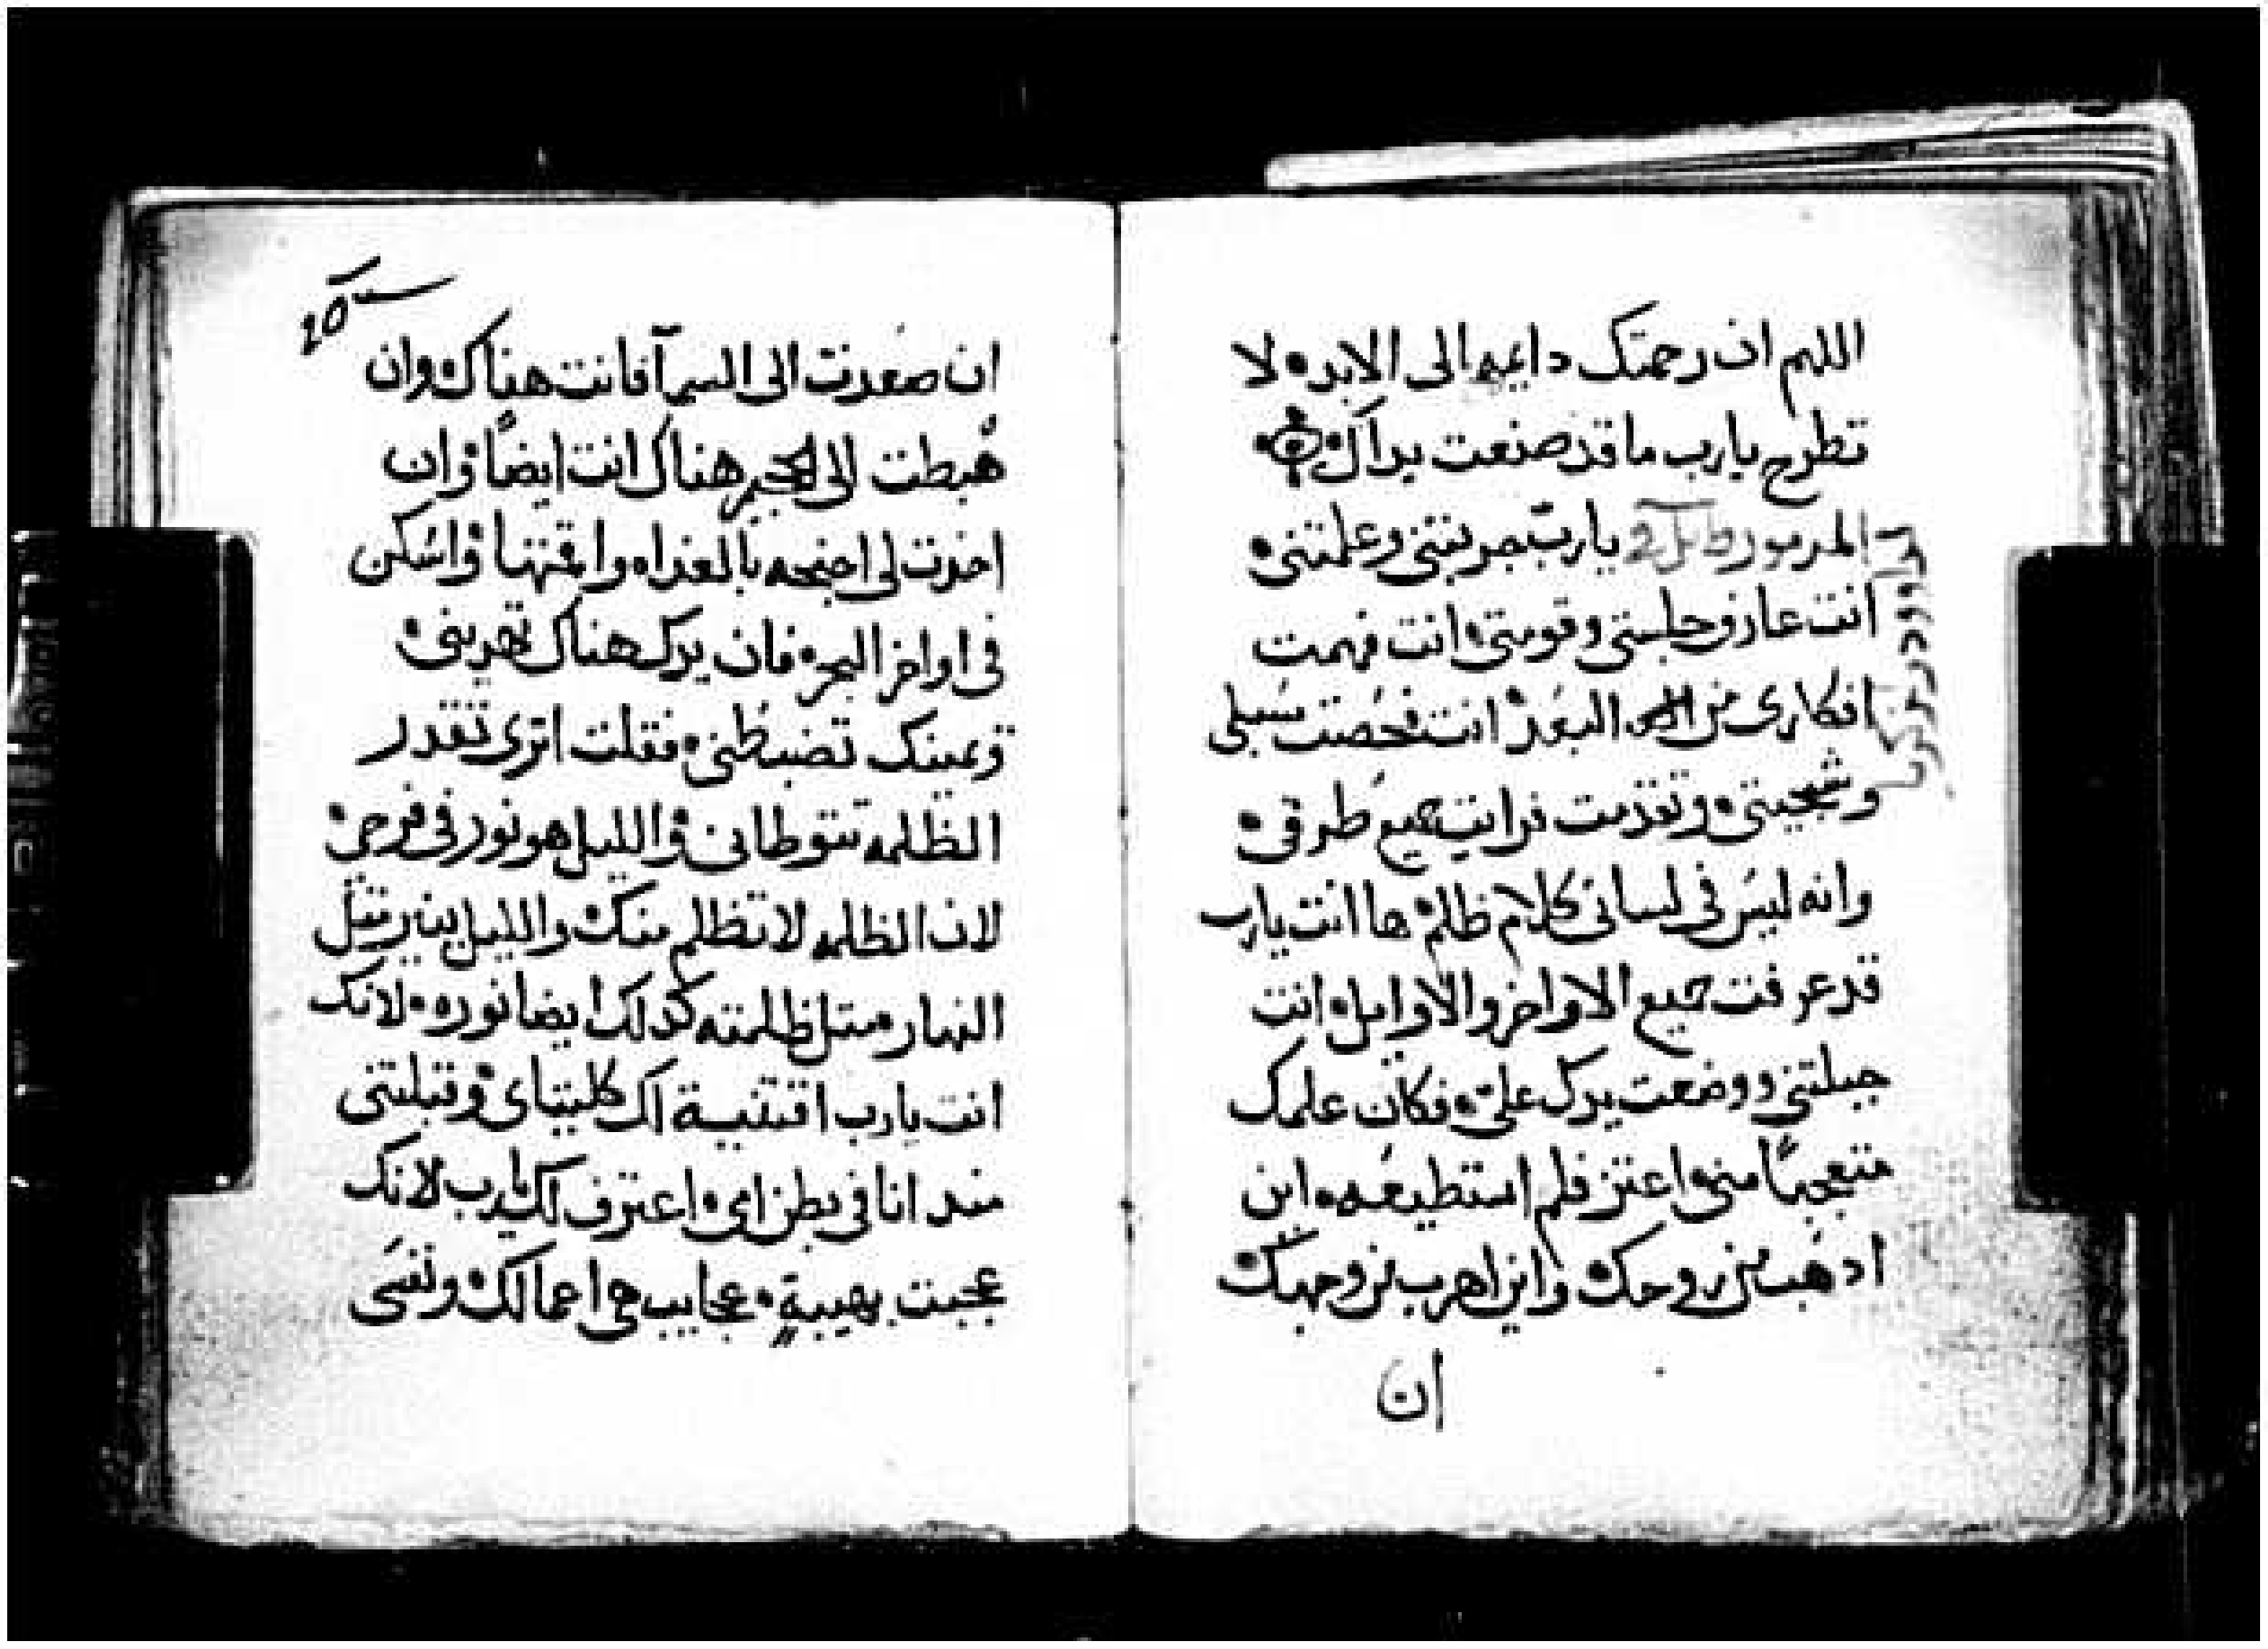 اللهم ان رحمتك دايمه الى الابد. لا
تطرح يارب ما قد صنعت يداك.
المزمور
يارب جربتني وعلمتني.
انت عارف جلستي وقومتي. انت فهمت
افكاري من البعد. انت فحصت سبيلي
وتقدمت فرايت جميع طرقي.
وانه ليس في لساني كلام ظلم. ها انت يارب
قد عرفت جميع الاواخر والاوايل. انت
جبلتني ووضعت يدك علي. فكان علمك
متعجبًا مني. اعتز فلم استطيعه. اين
اذهب من روحك. واين اهرب من وجهك.
ان
ان صعدت الى السمآ فانت هناك. وان
هبطت الى الجحيم هناك انت ايضًا. وان
اخدت لي اجنحه بالغداه واقمتها. واسكن
في اواخر البحر. فان يدك هناك تهديني.
ويمينك تضبطني. فقلت اترى تقدر
الظلمه تتوطاني. والليل هو نور في فرحي.
لان الظلمه لا تظلم منك. والليل ينير مثل
النهار. مثل ظلمته كدلك ايضا نوره. لانك
انت يارب اقتنيت لك كليتاي. وقبلتني
مند انا في بطن امي. اعترف لك يارب لانك
عجبت بهيبةٍ. عجايب هي اعمالك. ونفسي